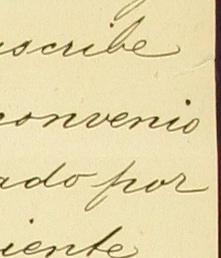 scribe
convenio
ado por
iente